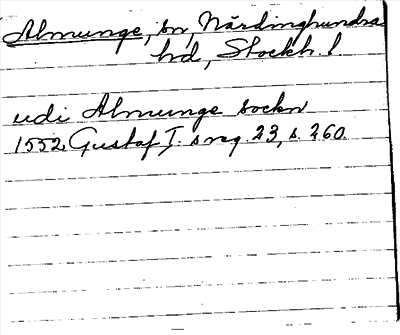 Almunge, sn, Närdinghundra
hd, Stockh. l.
udi Almunge sockn
1552. Gustaf I:s reg. 23, s. 260.